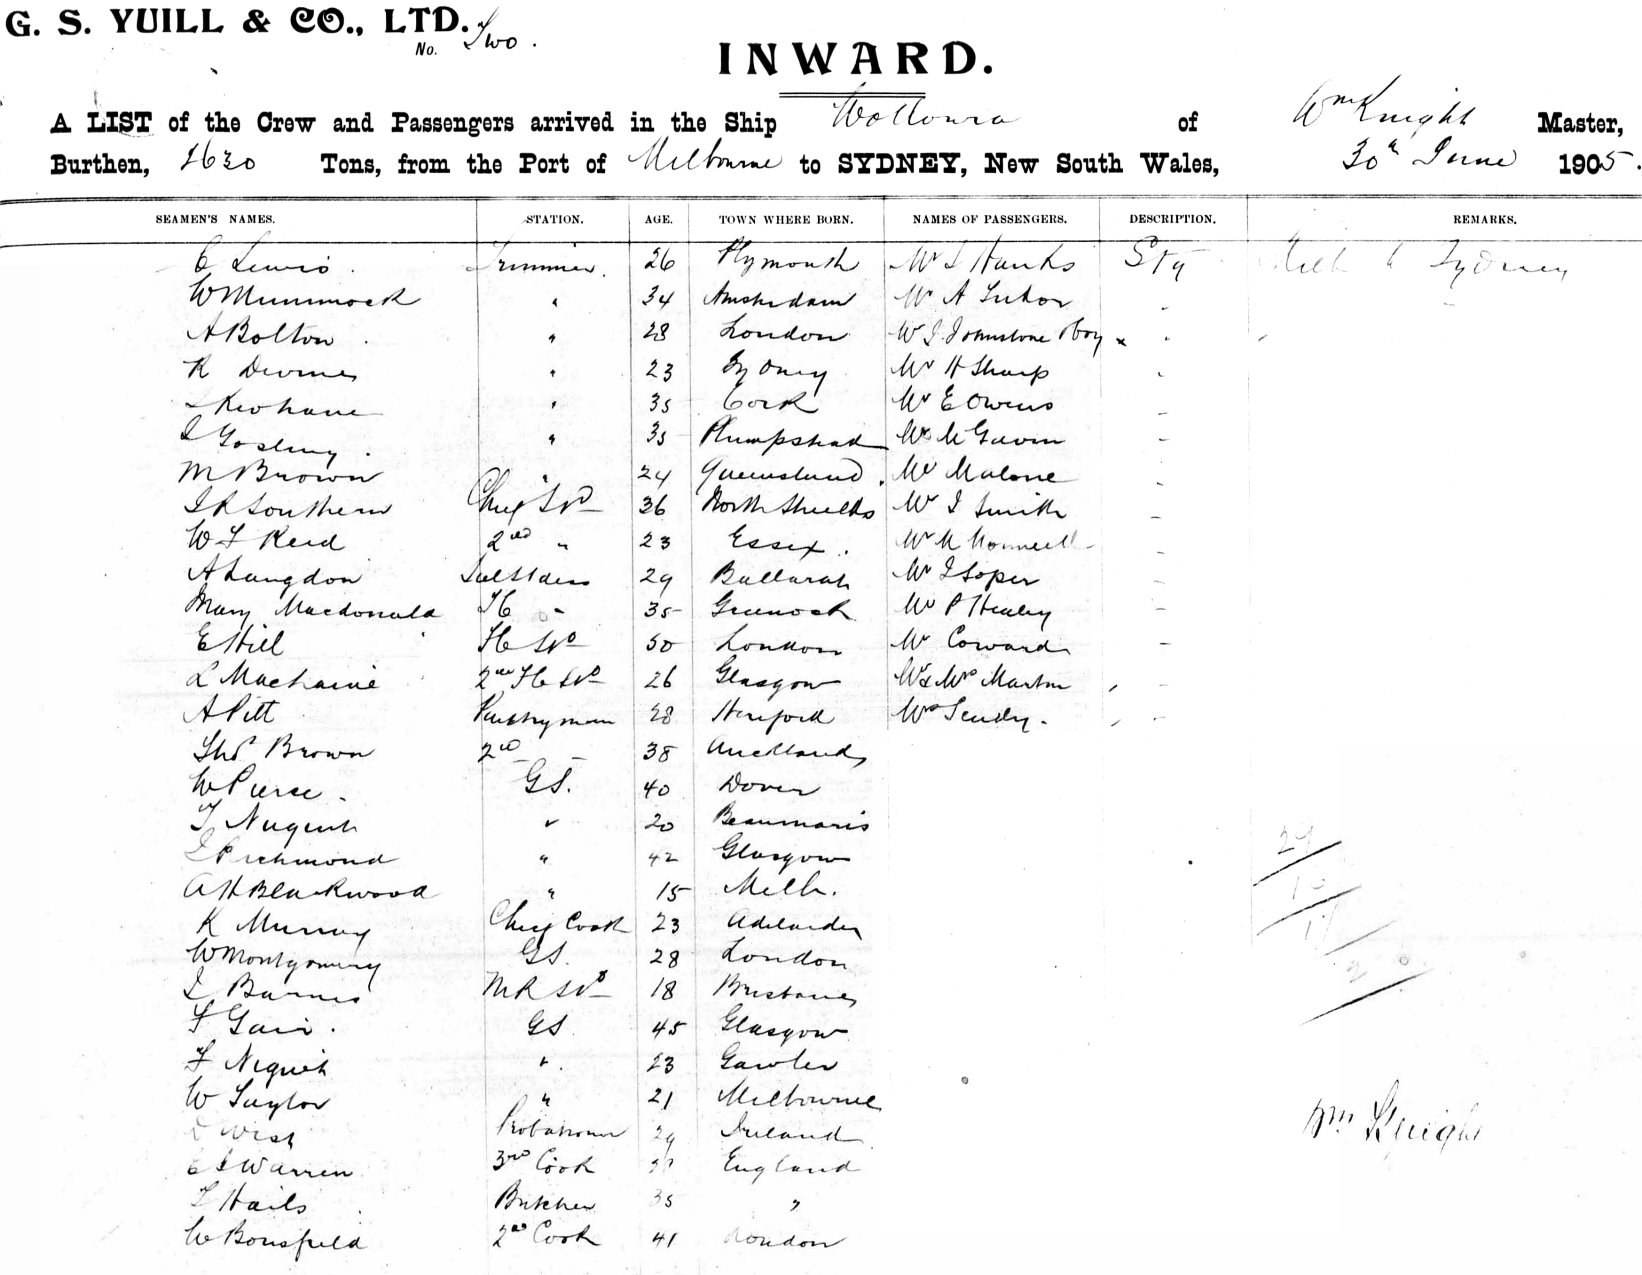 G. S. YUILL & CO., LTD.
No. Two.
INWARD.
A LIST of the Crew and Passengers arrived in the Ship Wollowra of Wm Knight Master,
Burthen, 1630 Tons, from the Port of Melbourne to SYDNEY, New South Wales, 30th June 1905.
SEAMEN'S NAMES. STATION. AGE. TOWN WHERE BORN. NAMES OF PASSENGERS. DESCRIPTION. REMARKS.
C Lewis. Trimmer. 26 Plymouth Mr Hanks Stg Melb to Sydney
W Mummock " 34 Amsterdam Mr A Tutor
A Bolton " 28 London Johnstone & boy
R Devine " 23 Sydney Mr H Sharp
Keohane " 35 Cork Mr E Owens
Gosling " 35 Plumpstead McGavin
M Brown " 24 Queensland Mr Malone
Southern Chief Std 36 North Shields Mr J Smith
W J Reid 2nd " 23 Essex.
A Langdon 29 Ballarat Mr J Soper
Mary Macdonald 35 Greenock Mr P Healey
E Hill 50 London Mr Coward
L Machaine 2nd 26 Glasgow Mr & Mrs Martin
A Pitt Pantryman 28 Hereford
Thos Brown 2nd 38 Auckland
W Pierce GS. 40 Dover
T Nugent " 20 Beaumaris
Richmond " 42 Glasgow
A H Blackwood " 15 Melb.
K Murray Chief Cook 23 Adelaide
W Montgomery GS. 28 London
J Barnes M R Std 18 Brisbane
F Gair. GS 45 Glasgow
F " 23 Gawler
W Taylor " 21 Melbourne
West Probationer 29 Ireland
Warren 3rd Cook England
Hails Butcher 35 "
W Bousfield 2nd Cook 41 London
29
10
17
2
Wm Knight